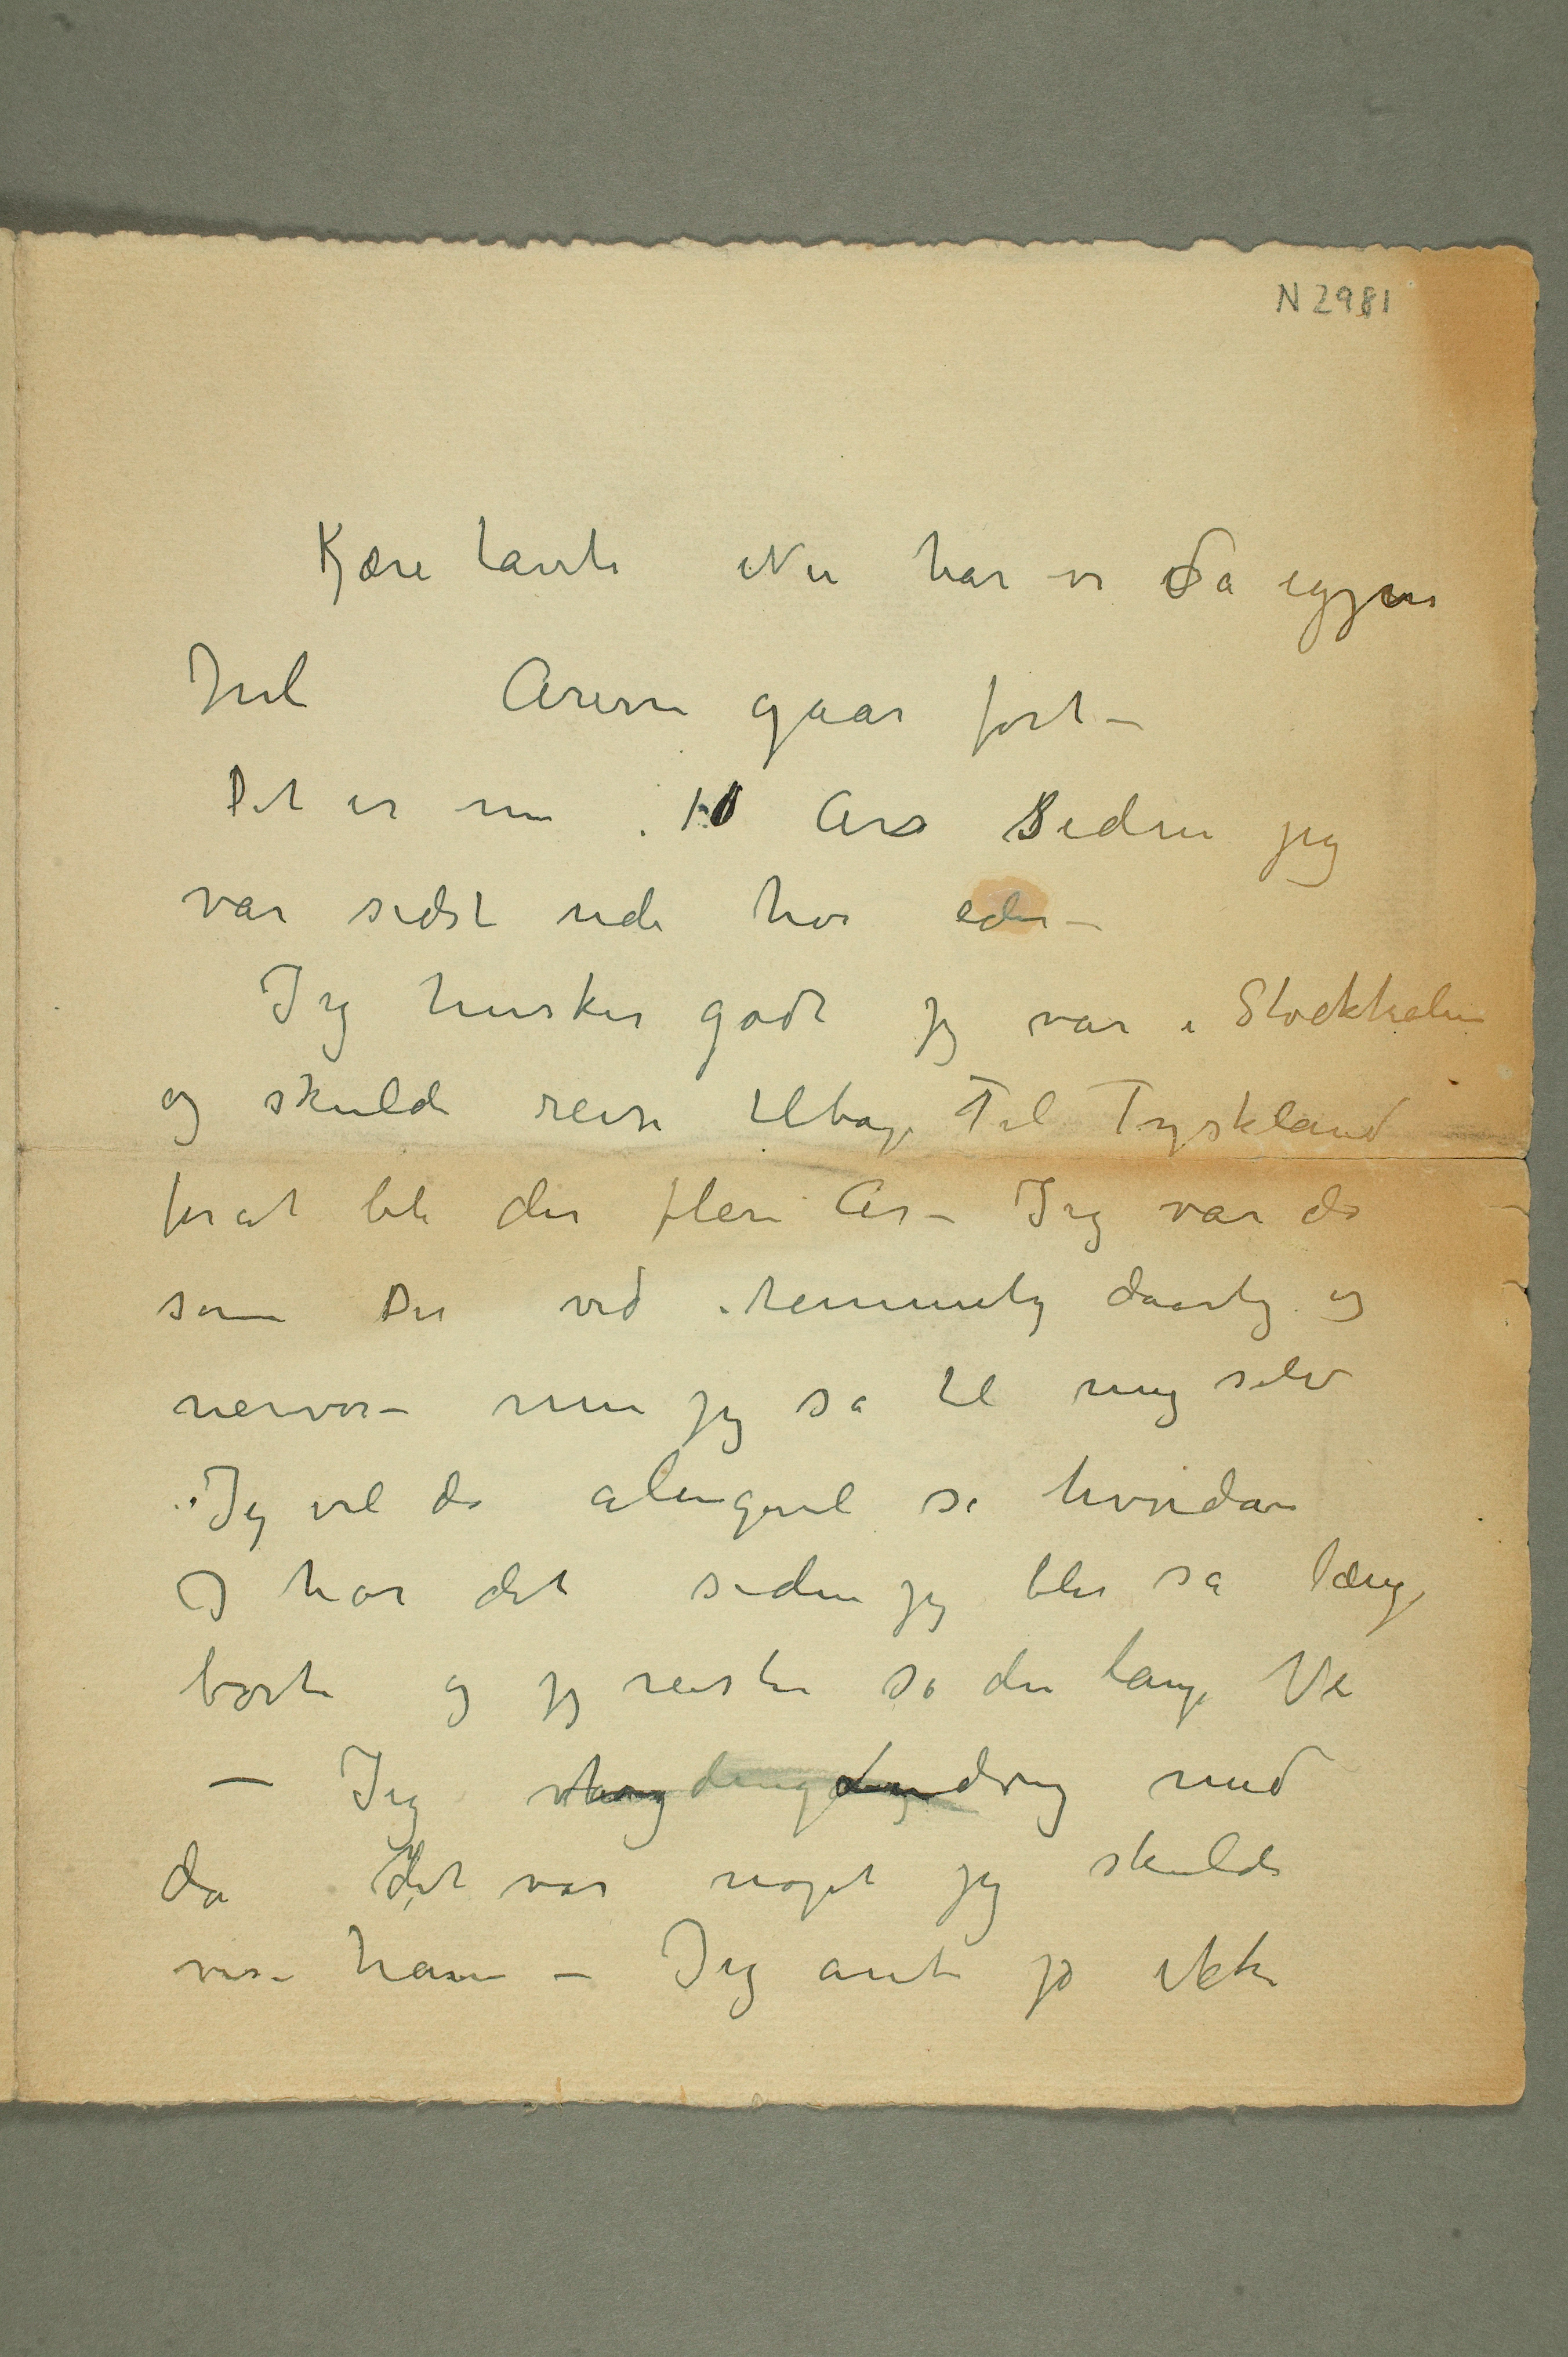 N 2981
Kjære tante Nu har vi da igjen
Jul Årene gaar fort –
Det er nu 10 Års siden jeg
var sidst ude hos eder –
Jeg husker godt jeg var i Stockholm
og skulde reise tilbage Til Tyskland
forat bli der flere År – Jeg var da
som Du ved temmelig daarlig og
nervøs – men jeg sa til mig selv
Jeg vil da alligevel se hvordan
I har det siden jeg blir så længe
borte og jeg reiste så den lange Vei
– Jeg med
da det var noget jeg skulde
vise ham – Jeg ante jo ikke